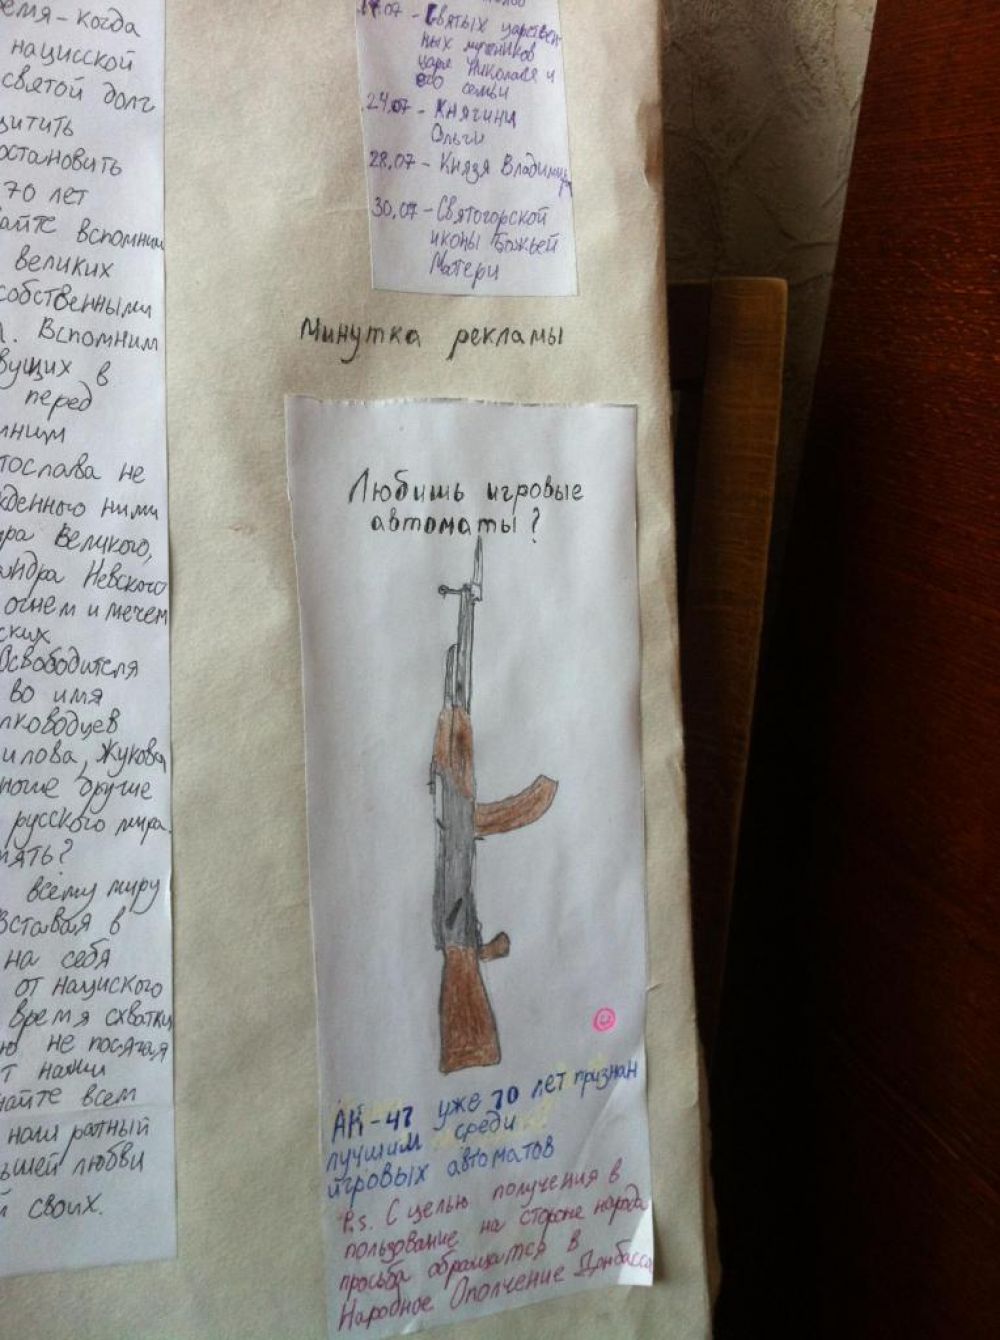 ремя-когда
нацисской
святой долг
щитить
остановить
70 лет
айте вспомним
великих
собственными
Вспомним
вущих в
перед
мним
тослава не
жденного ними
ра Великого,
андра Невского
огнем и мечем
ских
Освободителя
во имя
лководцев
илова, Жукова
ногие другие
русского мира.
мять?
всему миру
Вставая в
на себя
от нациского
время схватки
ю не посягая
т нажи
найте всем
наш ратный
ьшей любви
й своих.
17.07 - Святых царствен-
ных мучеников
царя Николая и
его семьи
24.07 - Княгини
Ольги
28.07 - Князя Владимира
30.07 - Святогорской
иконы Божьей
Матери
Минутка рекламы
Любишь игровые
автоматы?
АК-47 уже 70 лет признан
лучшим среди
игровых автоматов
P.s. С целью получения в
пользование на стороне народа
просьба обращатся в
Народное Ополчение Донбасса